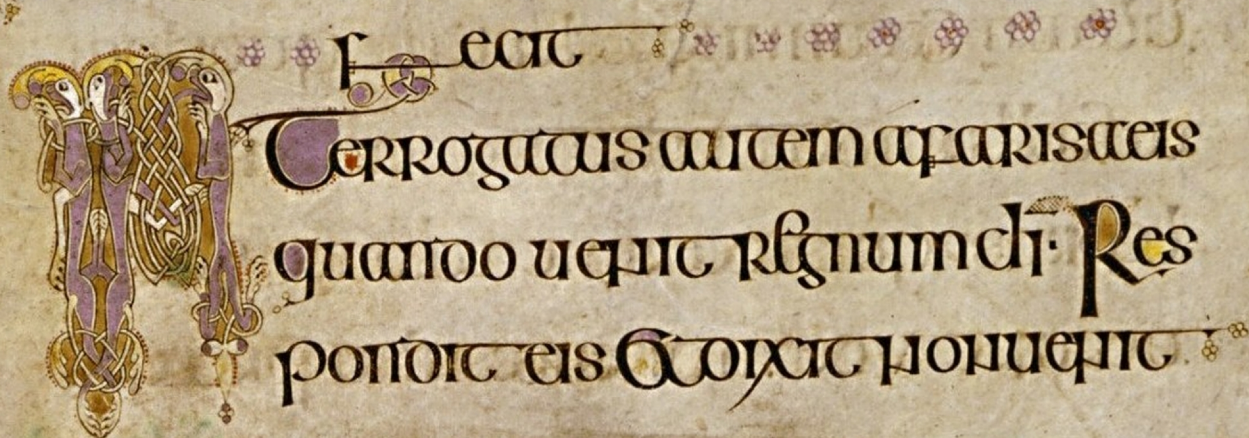 fecit
INTerrogatus autem afarisaeis
quando uenit regnum dī· Res
pondit eis Et dixit non uenit